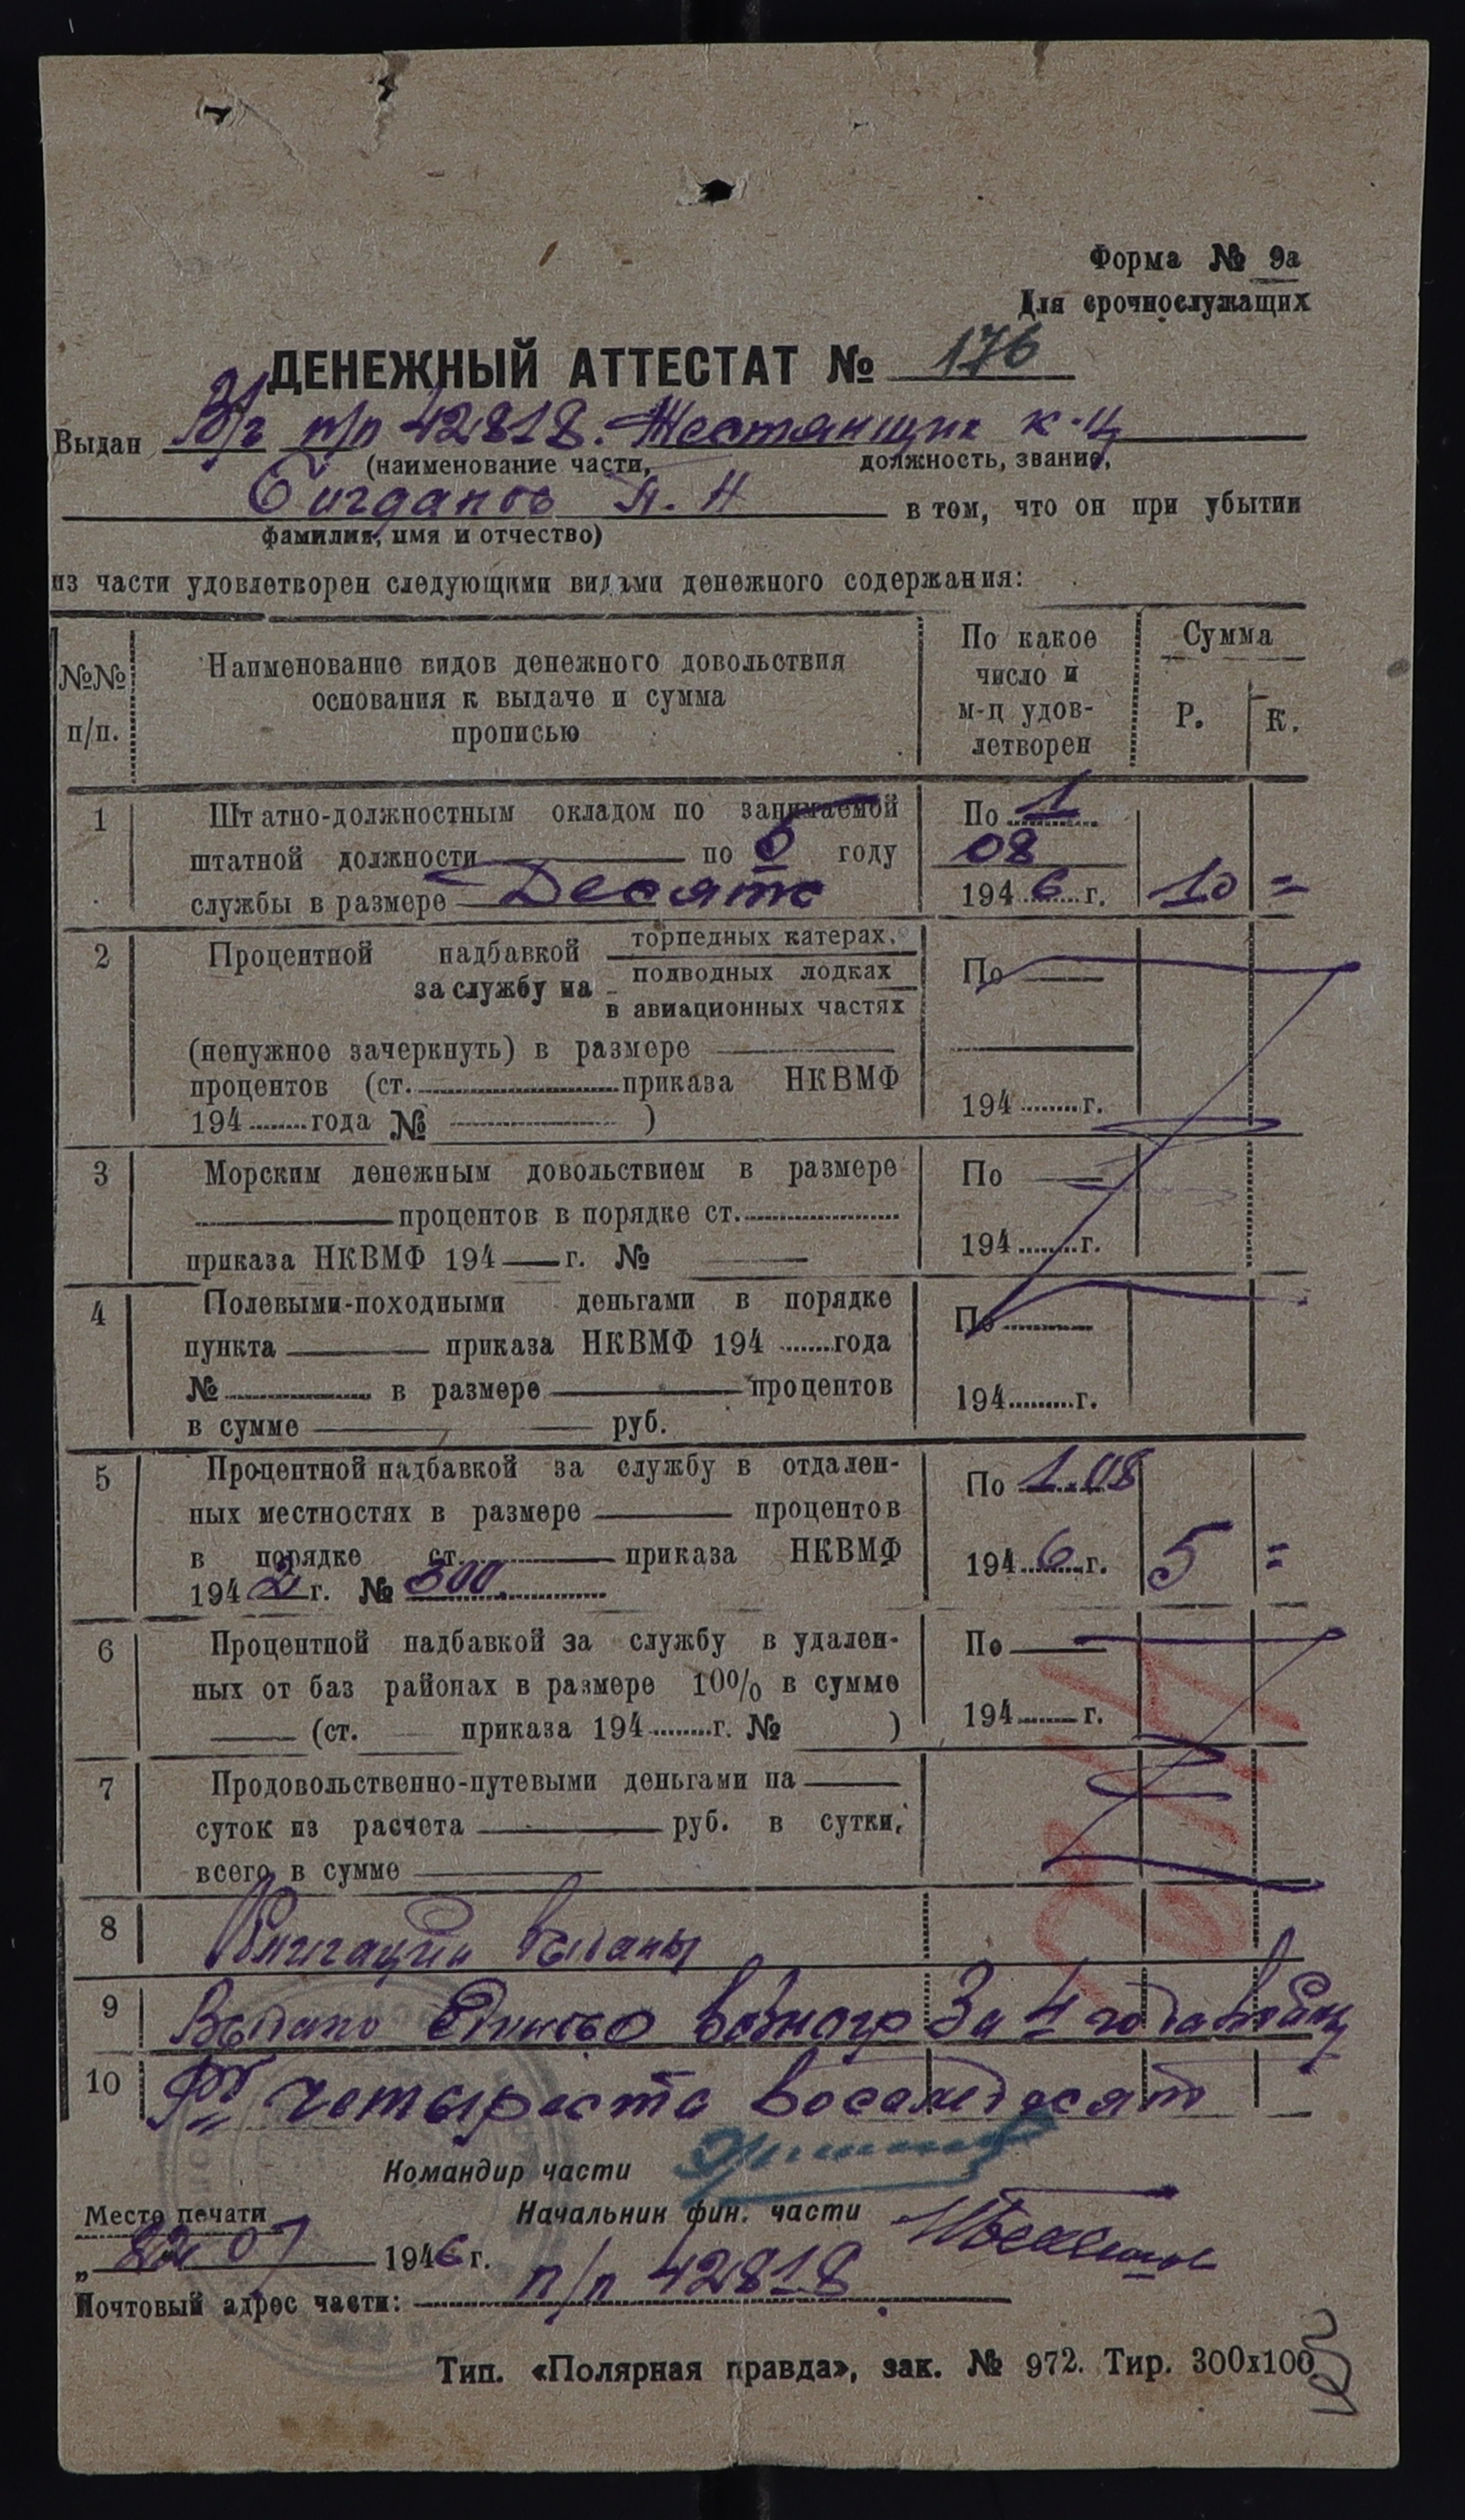 Форма № 9а
Для срочнослужащих
ДЕНЕЖНЫЙ АТТЕСТАТ № 176
Выдан В/ч п/п 42818. Жестянщик к-ц
(наименование части, должность, звание,
Бигданов П. Н в том, что он при убытии
фамилия, имя и отчество)
из части удовлетворен следующими видами денежного содержания:
№№ п/п.
Наименование видов денежного довольствия
основания к выдаче и сумма
прописью
По какое
число и
м-ц удов-
летворен
Сумма
Р. К.
1 Штатно-должностным окладом по занимаемой По 1
штатной должности по 6 году 08
службы в размере Десять 1946 г. 10 =
2 Процентной надбавкой торпедных катерах. По
за службу на подводных лодках
в авиационных частях
(ненужное зачеркнуть) в размере
процентов (ст. приказа НКВМФ 194 г.
194 года № )
3 Морским денежным довольствием в размере По
процентов в порядке ст.
приказа НКВМФ 194 г. № 194 г.
4 Полевыми-походными деньгами в порядке По
пункта приказа НКВМФ 194 года
№ в размере процентов 194 г.
в сумме руб.
5 Процентной надбавкой за службу в отдален- По 1.08
ных местностях в размере процентов
в порядке ст. приказа НКВМФ 1946 г. 5 =
1942 г. № 300
6 Процентной надбавкой за службу в удален- По
ных от баз районах в размере 10% в сумме
(ст. приказа 194 г. № ) 194 г.
7 Продовольственно-путевыми деньгами на
суток из расчета руб. в сутки,
всего в сумме
8 Облигации выданы
9 Выдано За 4 года
10 четыреста восемьдесят
Командир части
Место печати Начальник фин. части
„ 07 1946 г.
Почтовый адрес части: п/п 42818
Тип. «Полярная правда», зак. № 972. Тир. 300х100